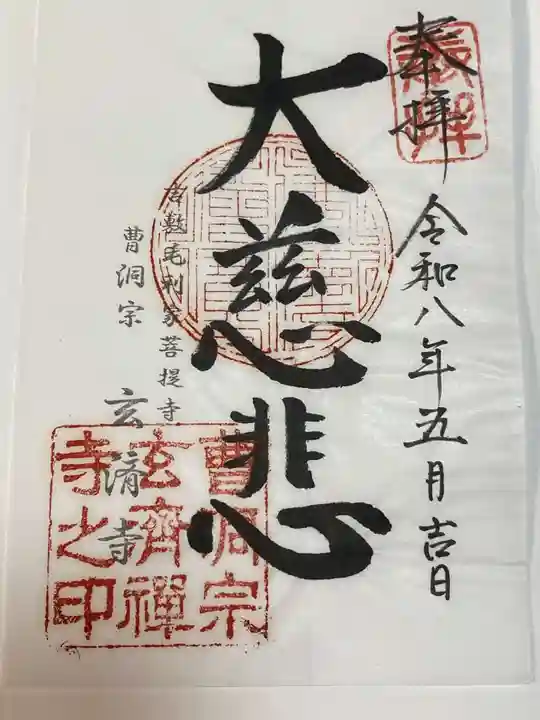 奉拝
令和八年五月吉日
大慈悲
倉敷毛利家菩提寺
曹洞宗
玄濟寺
曹洞宗
玄齊禪
寺之印